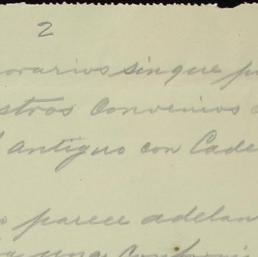 2
orarios sin que p
stros Convenios
Antiguo con Cade
parece adelan
una